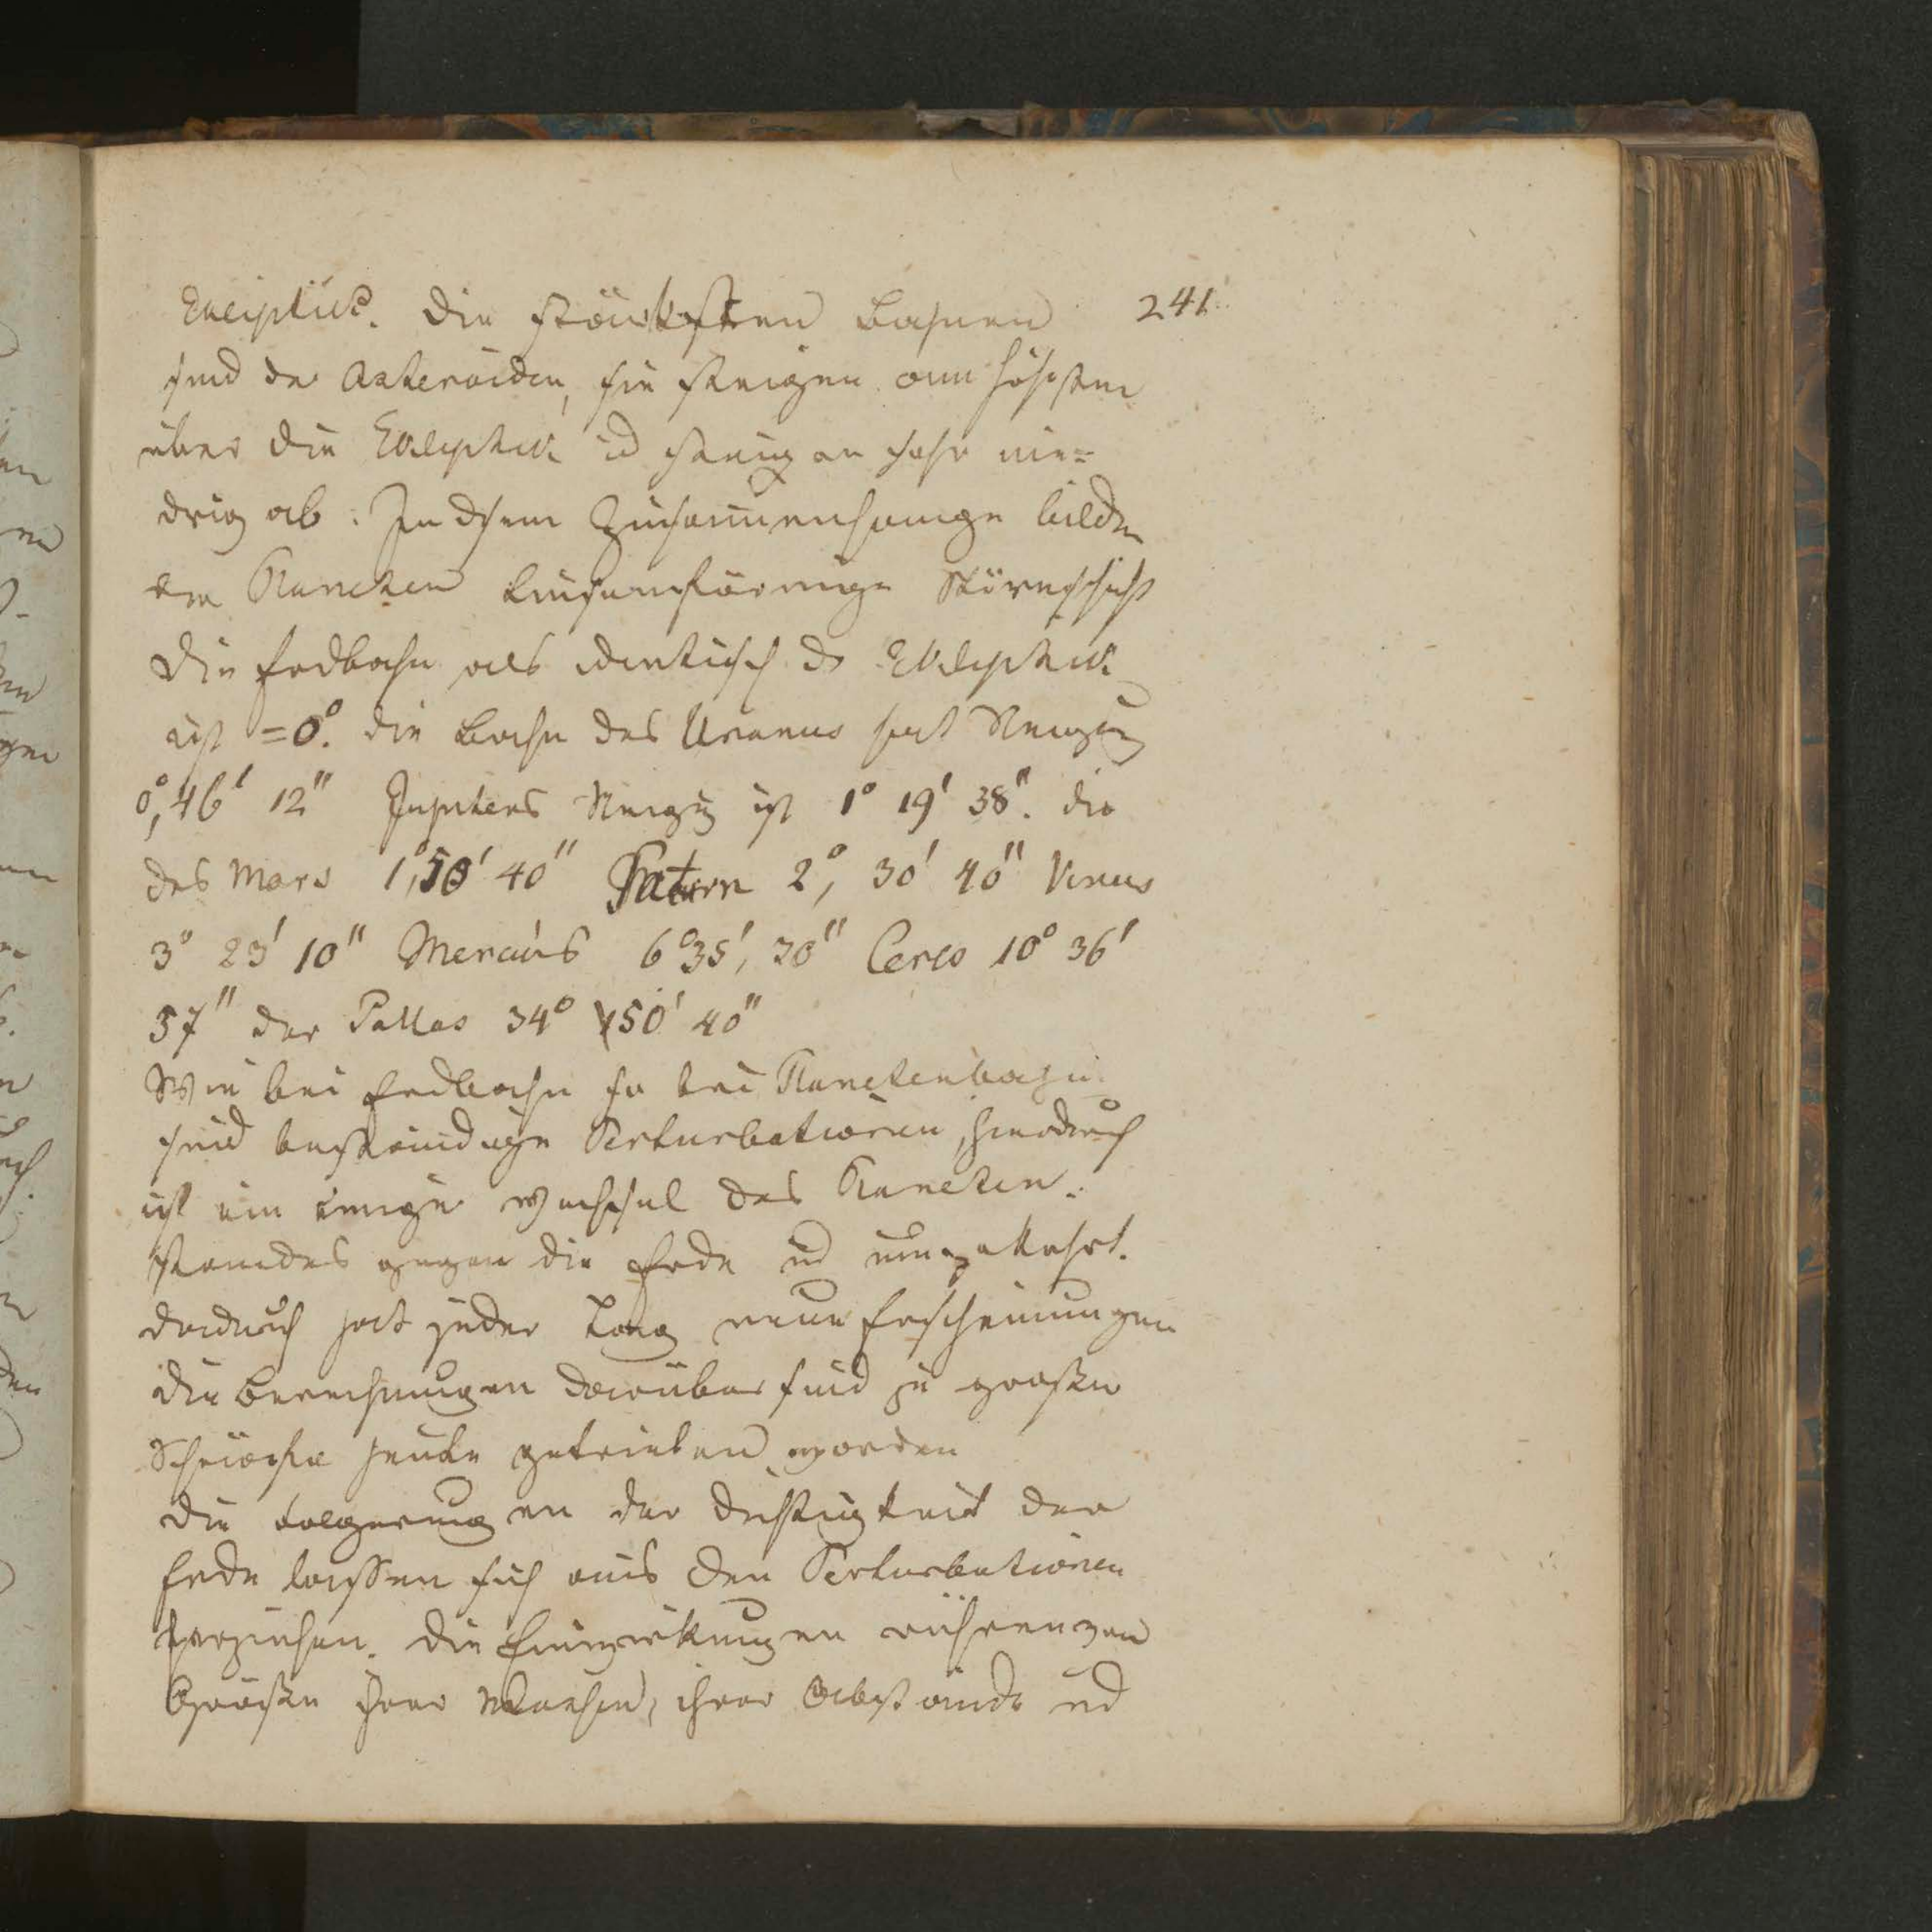 Eklciptick. Die stärksten Bahnen 241.
sind der Asteroiden, sie steigen am höchsten
über die Ekliptik ud steigen sehr nie=
drig ab. In dsem Zusammenhange bilden
die Planeten linsenförmige
Die Erdbahn als identisch dr Ekliptik
ist =0°. die Bahn des Uranus hat Neigung
0°, 46' 12" Jupiters Neigug ist 1° 19' 38". die
des Mars 1°, 50' 40" Saturn 2°, 30' 40" Venus
3° 23' 10" Mercurs 6° 35', 20" Ceres 10° 36'
57" der Pallas 34° 50' 40"
Wie bei Erdbahn so bei Planetenbahn
sind beständige Perturbationen, hierdurch
ist ein ewiger Wechsel des Planeten-
standes gegen die Erde ud umgekehrt.
dadurch hat jeder Tag neue Erscheinungen
die Berechnungen darüber sind zu großer
Schärfe heute getrieben worden
die Folgerungen der Dichtigkeit der
Erde lassen sich aus den Perturbationen
herziehen. Die Einwirkungen rühren von
Größe ihrer Massen, ihrer Abstände ud